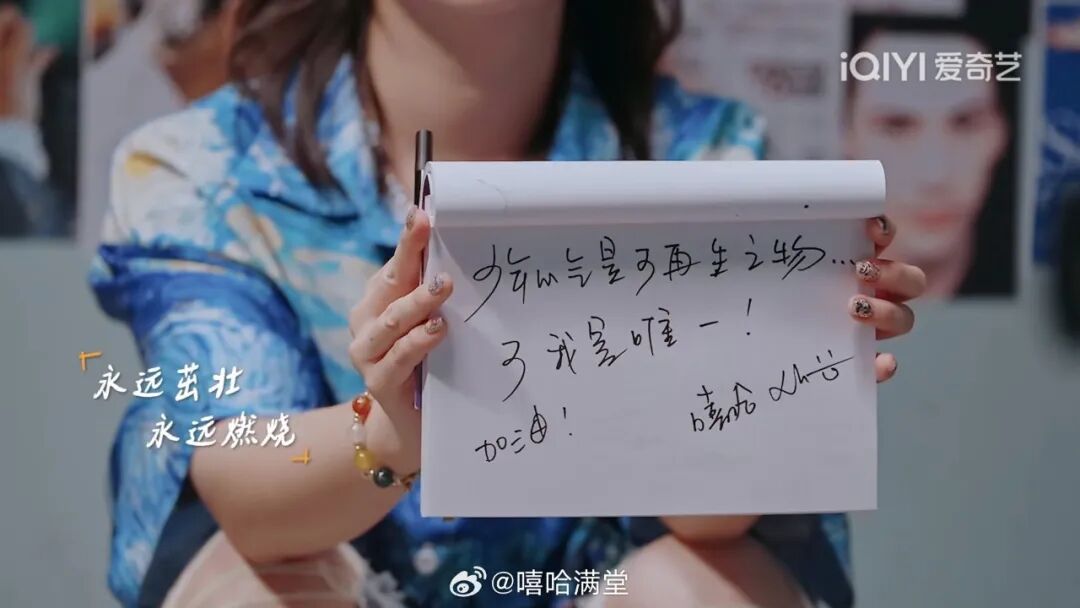 iQIYI 爱奇艺
少年心气是不可再生之物...
可我是唯一!
加油!
嘻哈
永远茁壮
永远燃烧
@嘻哈满堂